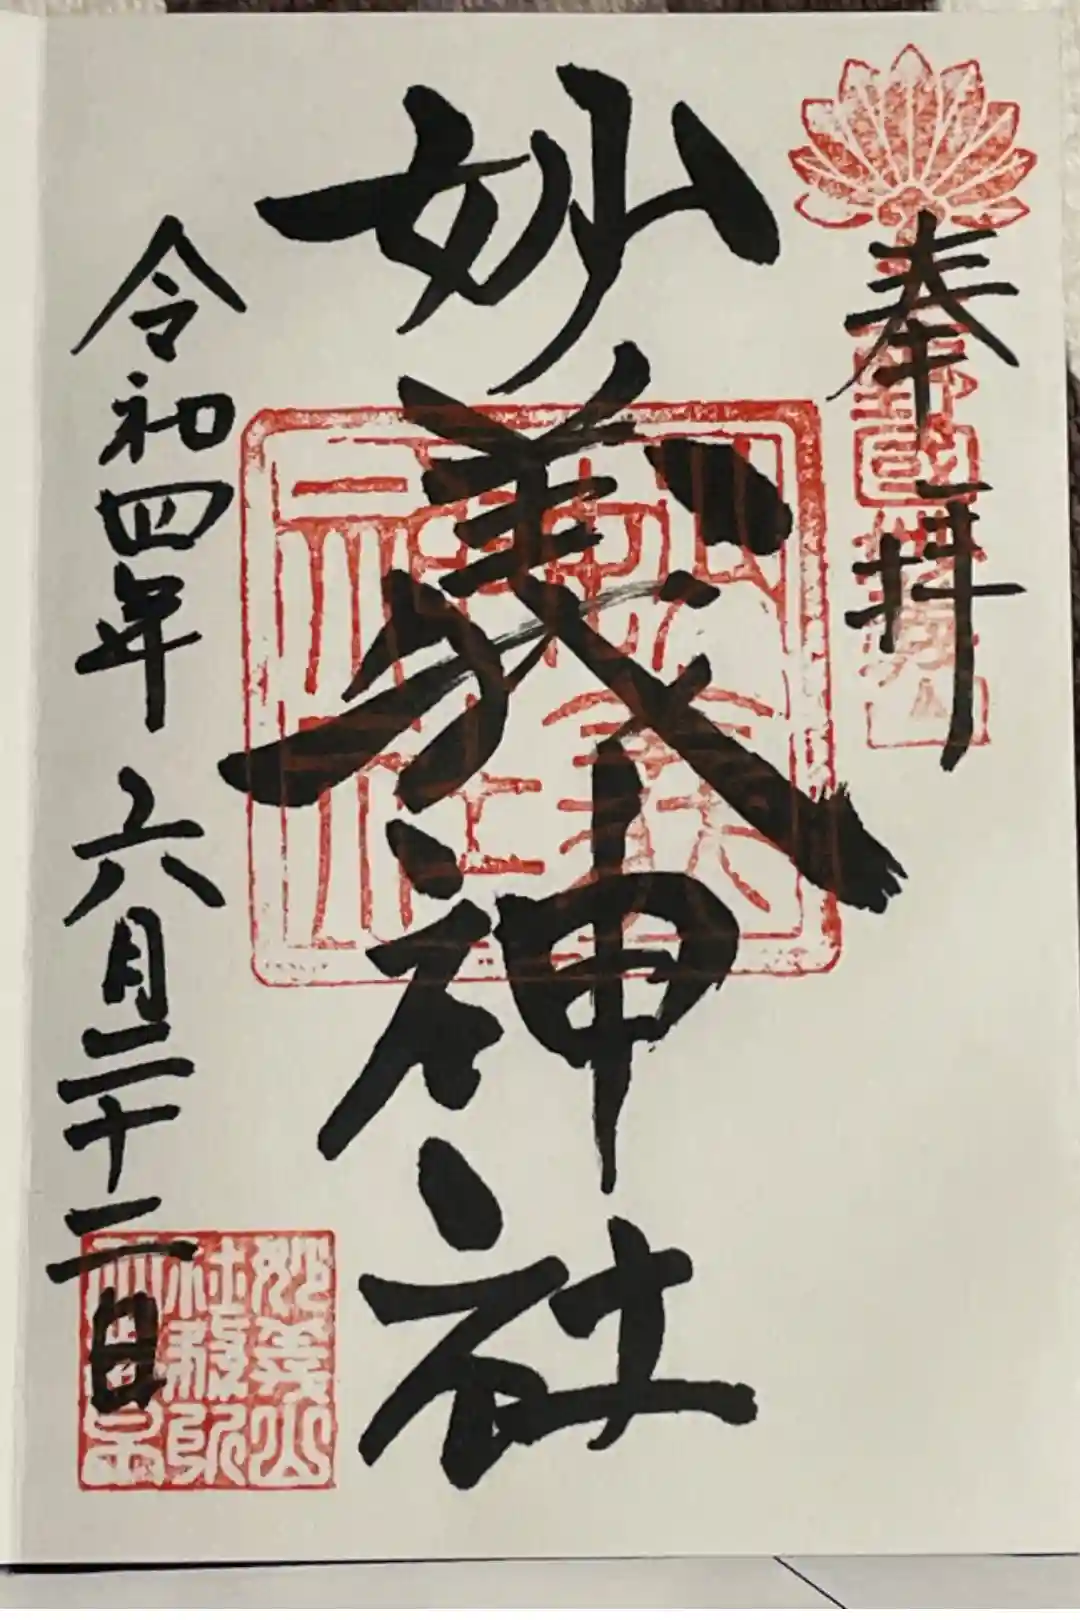 奉拝
妙義神社
令和四年六月二十二日
妙義神社
妙義山
社務所